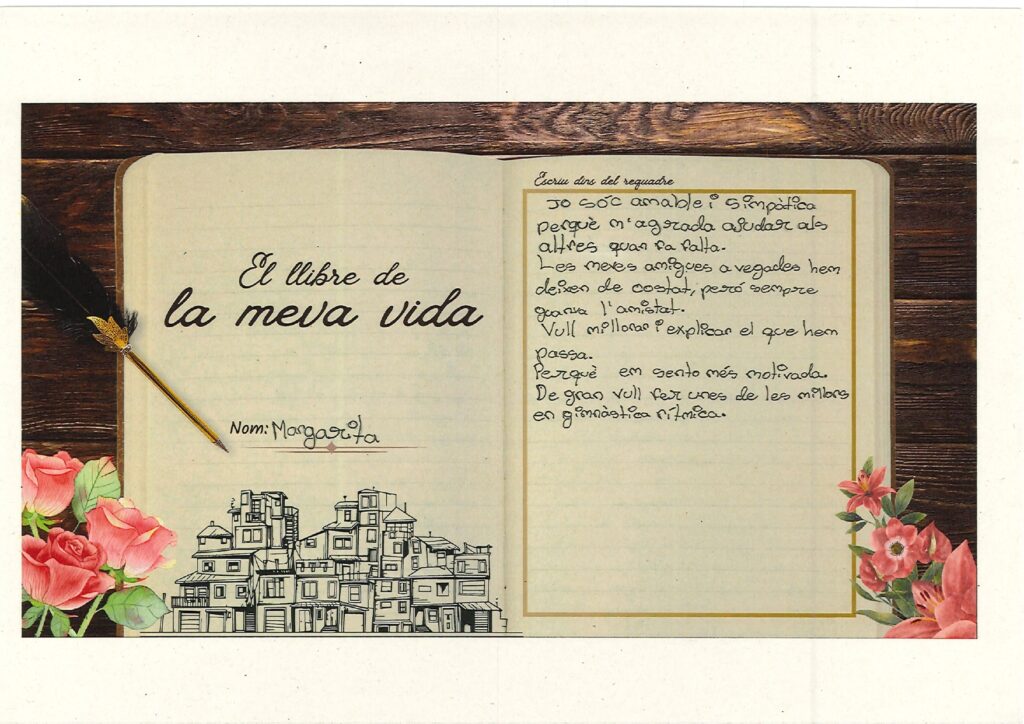 El llibre de
la meva vida
Nom: Margarita
Escriu dins del requadre
Jo sóc amable i simpàtica
perquè m'agrada ajudar als
altres quan fa falta.
Les meves amigues a vegades hem
deixen de costat, peró sempre
guanya l'amistat.
Vull millorar i explicar el que hem
passa.
Perquè em sento més motivada.
De gran vull fer unes de les millors
en gimnàstica rítmica.